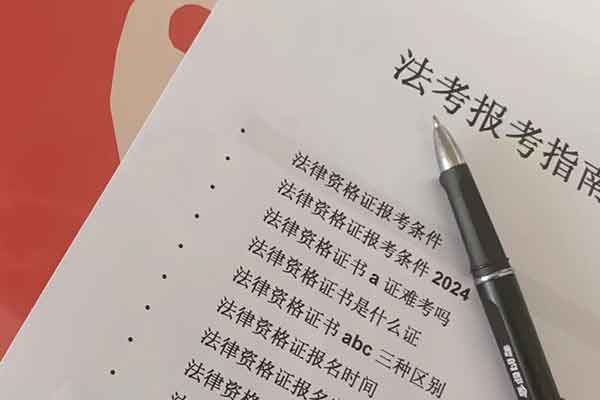 法考报考指南
法律资格证报考条件
法律资格证报考条件 2024
法律资格证书 a 证难考吗
法律资格证书是什么证
法律资格证书 abc 三种区别
法律资格证报名时间
法律资格证报名
法律资格证